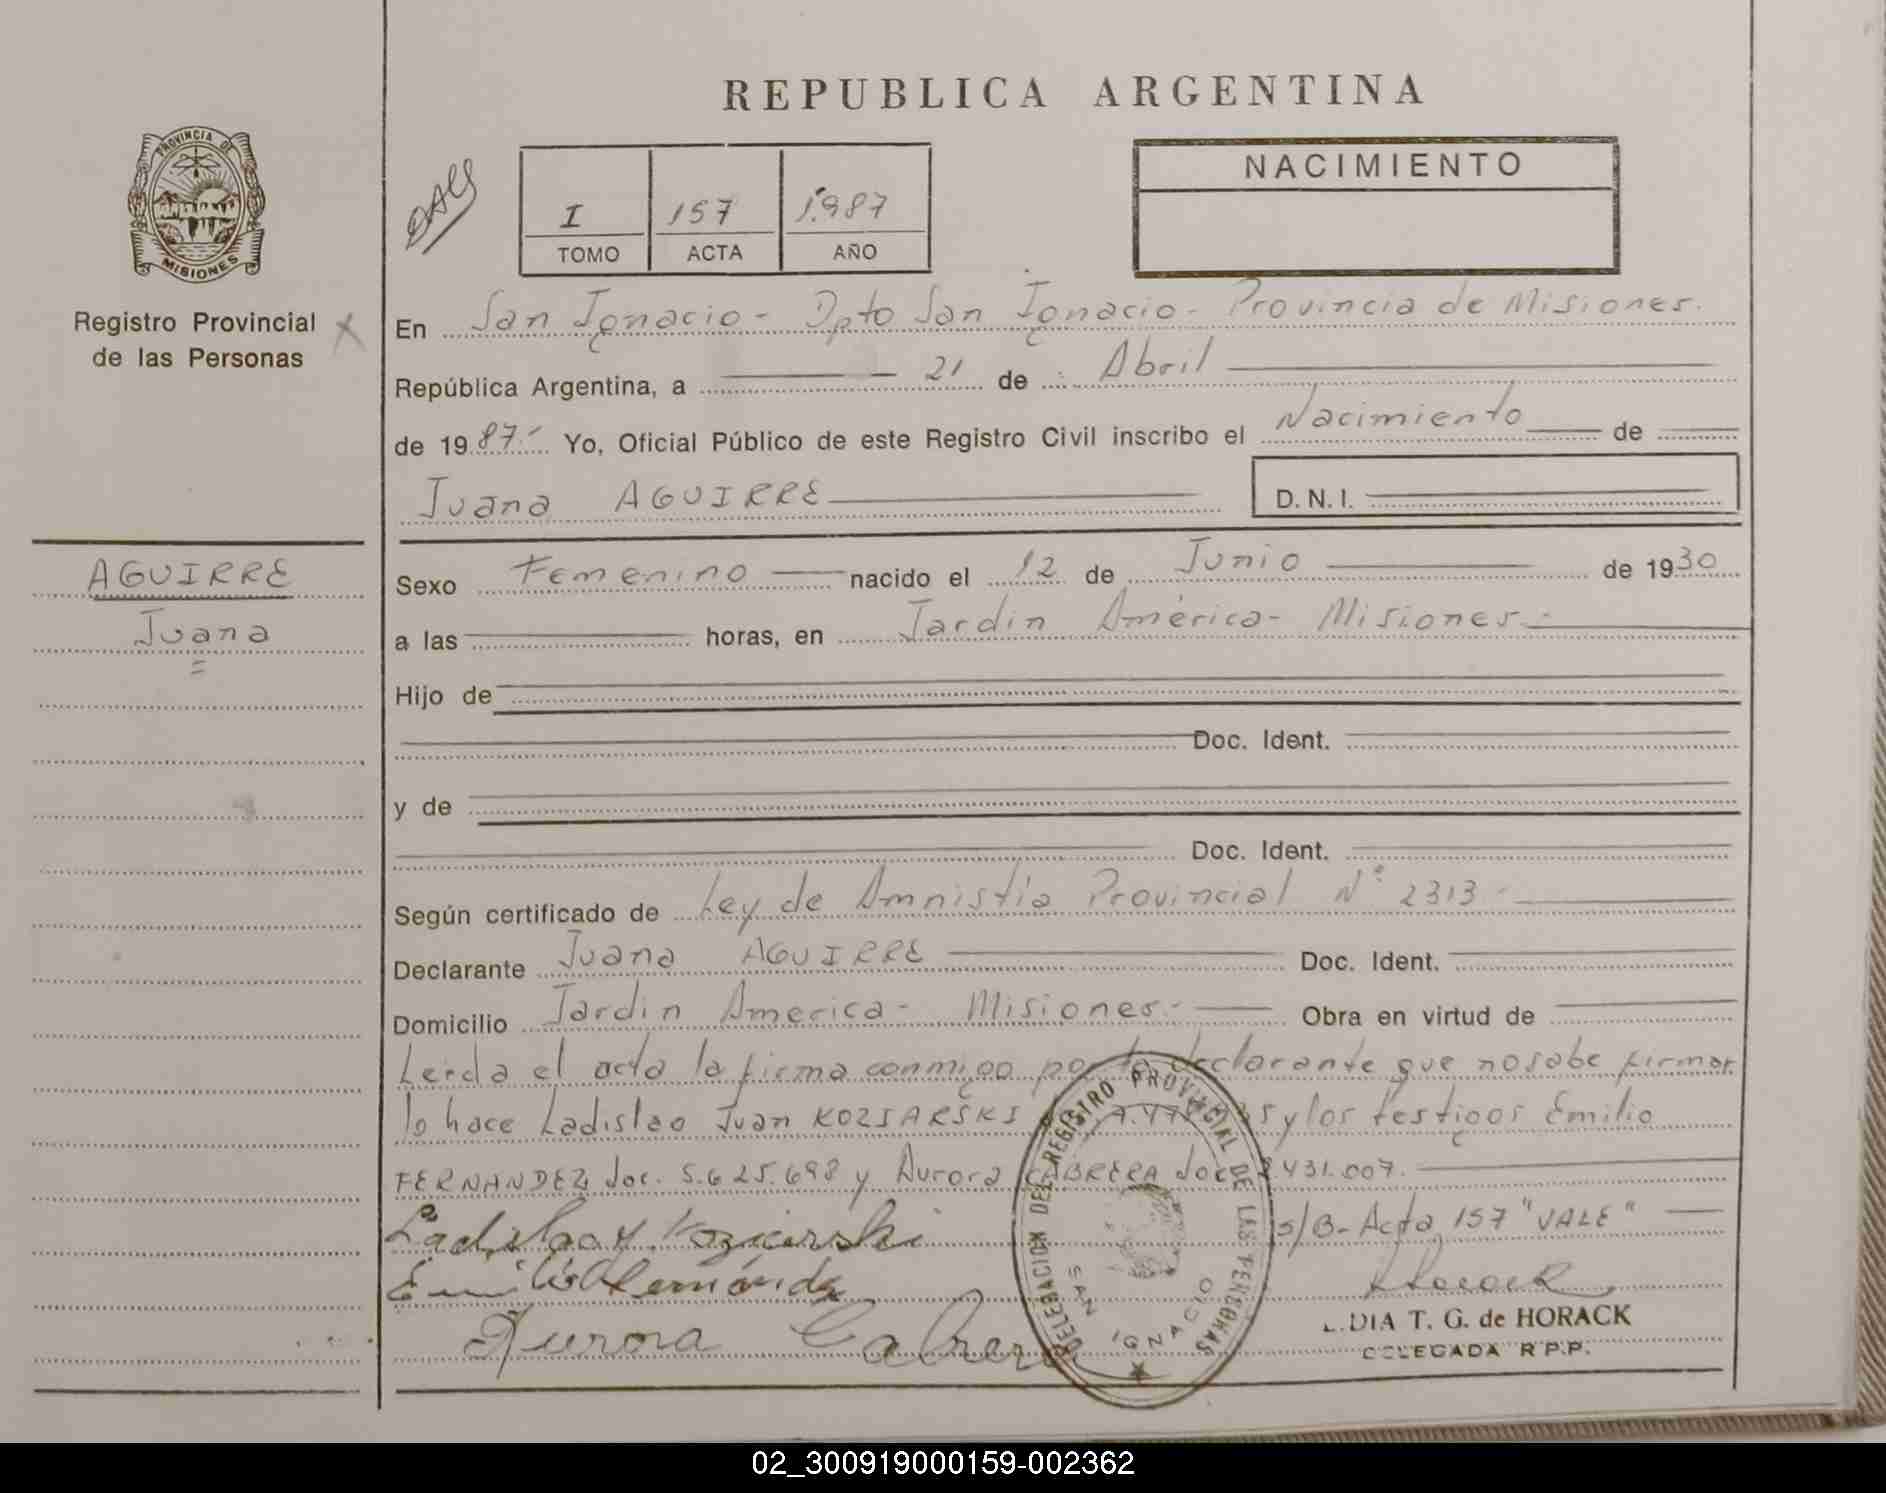 REPUBLICA ARGENTINA
PROVINCIA DE
MISIONES
Registro Provincial
de las Personas
I 157 1.987
TOMO ACTA AÑO
NACIMIENTO
En San Ignacio - Dpto San Ignacio - Provincia de Misiones.
República Argentina, a 21 de Abril
de 1987.- Yo, Oficial Público de este Registro Civil inscribo el Nacimiento de
Juana AGUIRRE D. N. I.
AGUIRRE
Juana
Sexo Femenino nacido el 12 de Junio de 1930
a las horas, en Jardin América - Misiones.-
Hijo de
Doc. Ident.
y de
Doc. Ident.
Según certificado de Ley de Amnistía Provincial N° 2313.-
Declarante Juana AGUIRRE Doc. Ident.
Domicilio Jardin America - Misiones.- Obra en virtud de
Leída el acta la firma conmigo por la declarante que no sabe firmar
lo hace Ladislao Juan KOZIARSKI y los testigos Emilio
FERNANDEZ Doc. 5.625.698 y Aurora CABRERA Doc 431.007.
S/B- Acta 157 "VALE"
Ladislao J. Koziarski
Emilio Fernández
Aurora Cabrera
Horack
DIA T. G. de HORACK
DELEGADA R.P.P.
DELEGACION DEL REGISTRO PROVINCIAL DE LAS PERSONAS
SAN IGNACIO
02_300919000159-002362